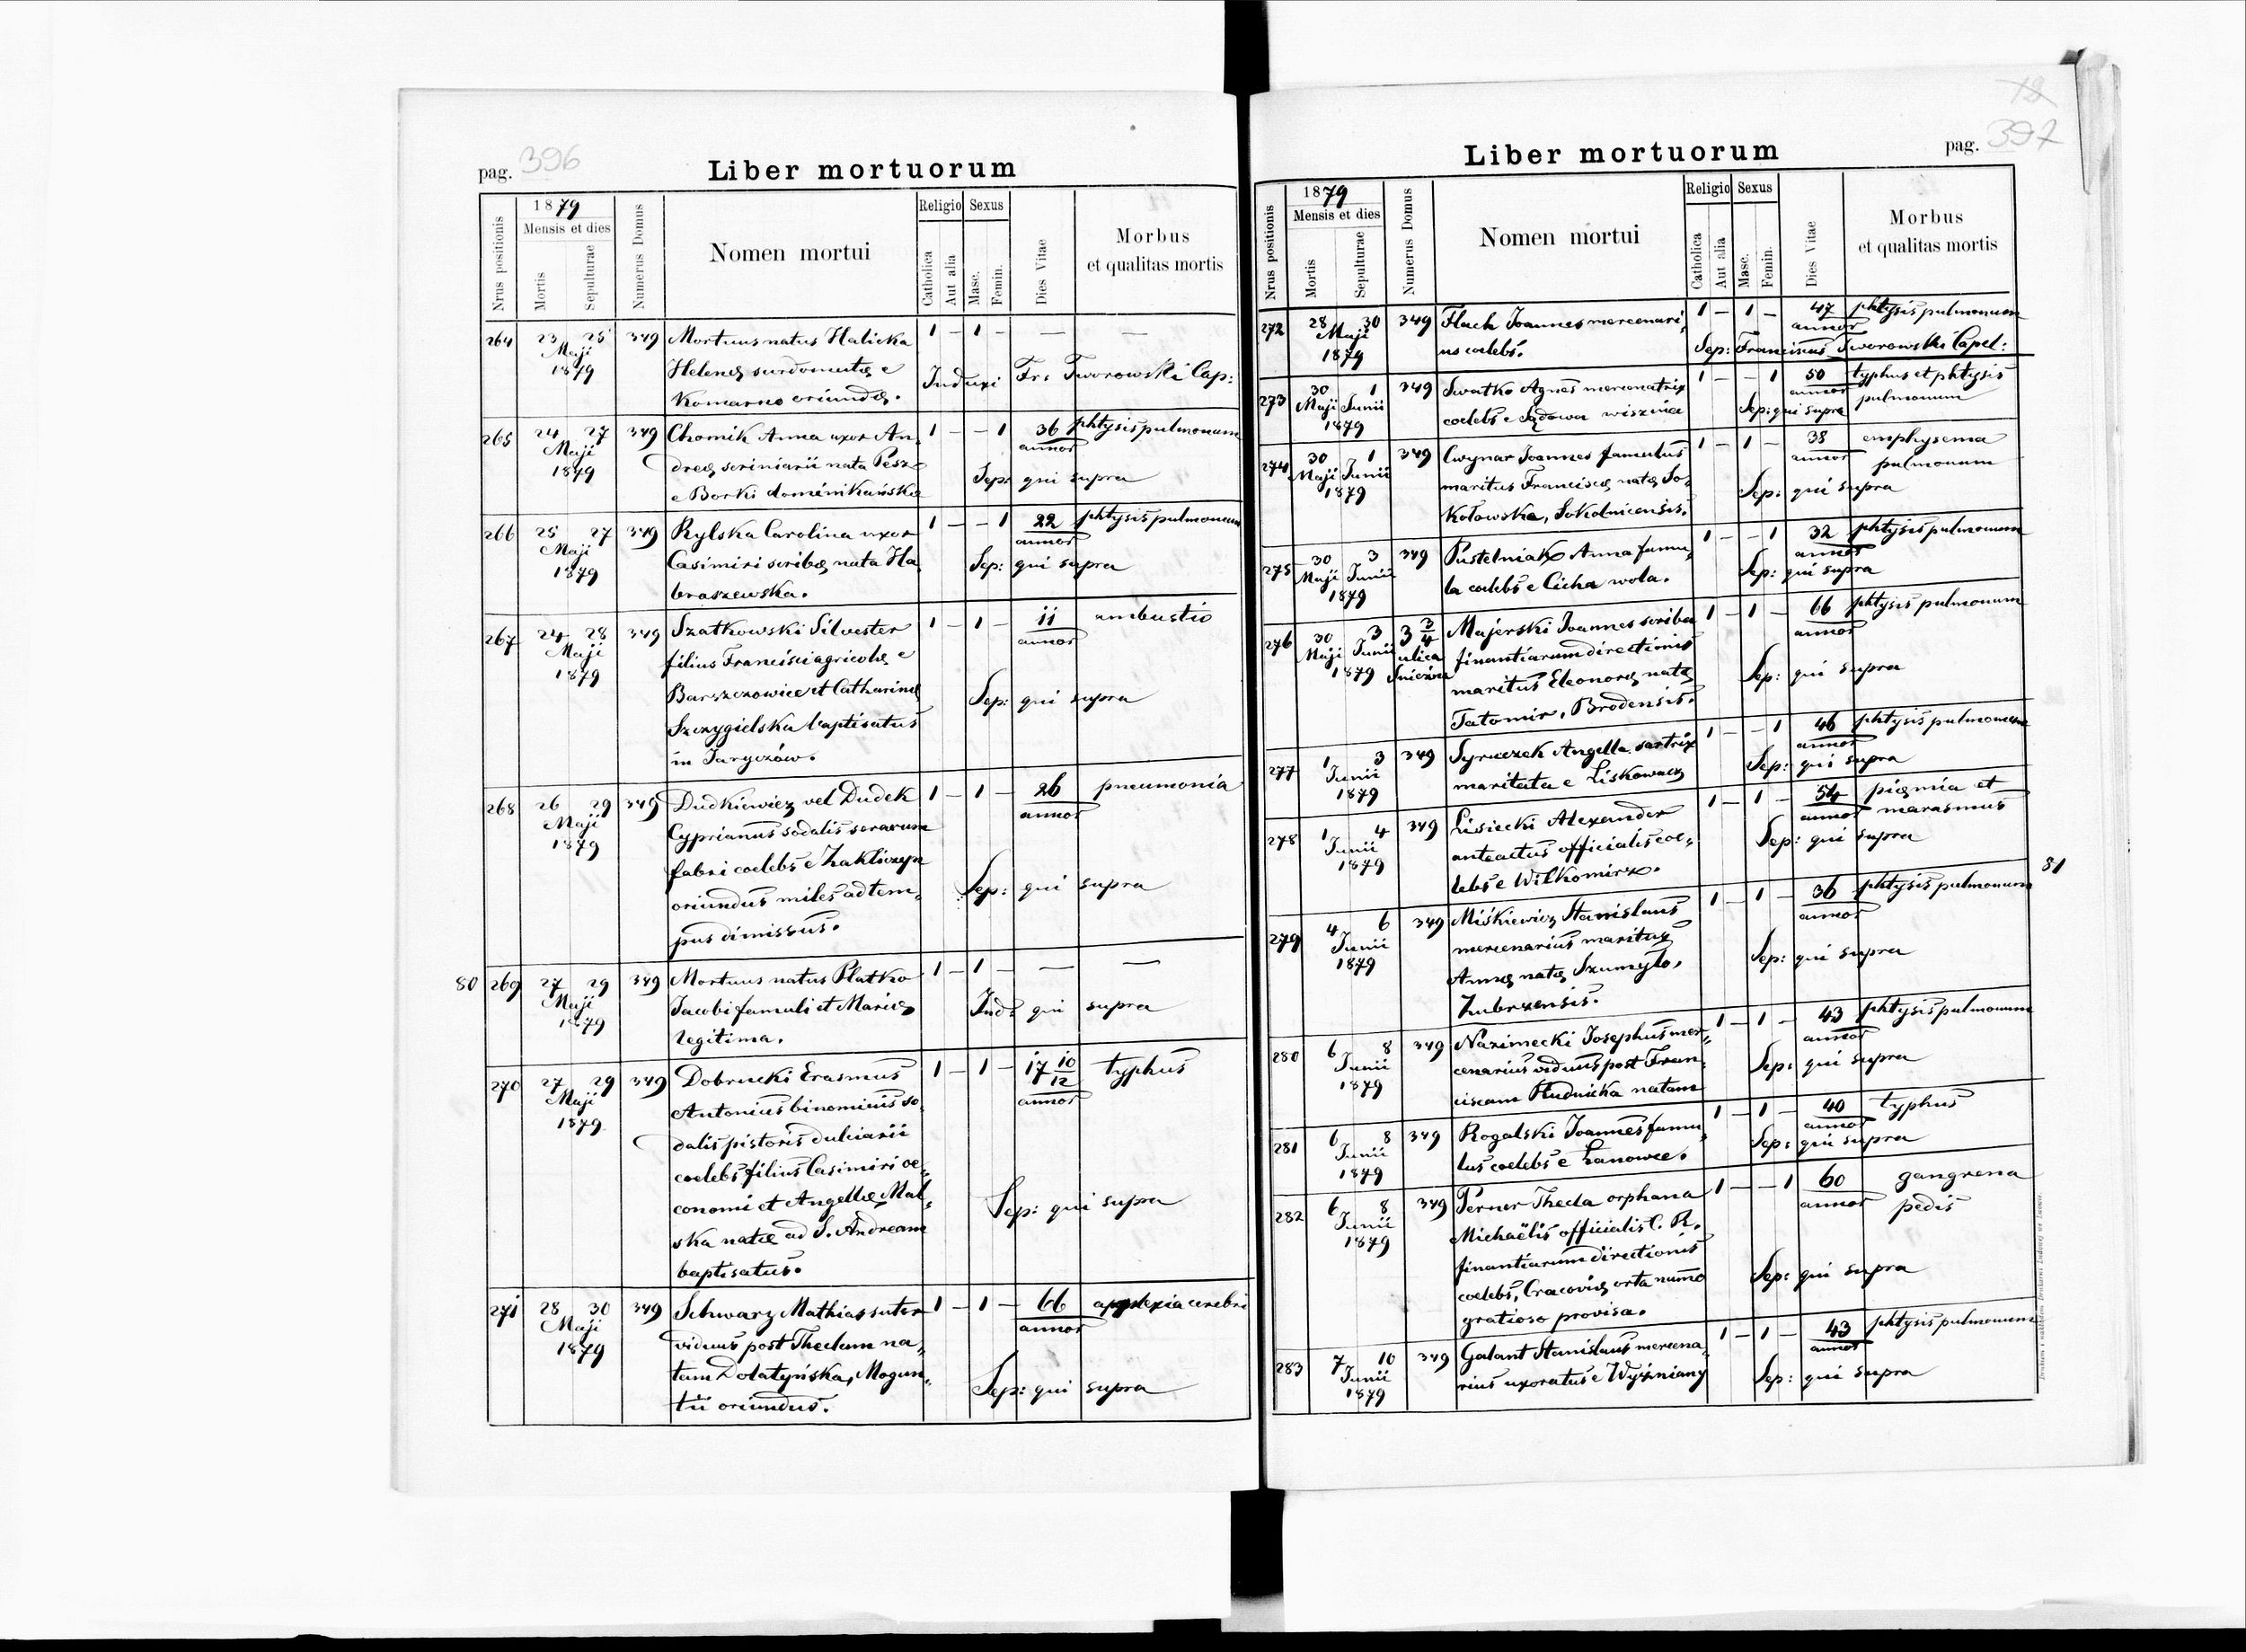 pag. 396
Liber mortuorum
Nrus positionis
1879
Mensis et dies
Mortis
Sepulturae
Numerus Domus
Nomen mortui
Religio
Catholica
Aut alia
Sexus
Masc.
Femin.
Dies Vitae
Morbus
et qualitas mortis
264 23 25 349 Mortuus natus Halicka 1 – 1 – — —
Maji Helenę surdomutę e
1879 Komarno oriundę. Induxi Fr: Tworowski Cap:
265 24 27 349 Chomik Anna uxor An„ 1 – – 1 36 phtysis pulmonum
Maji dreę scriniarii nata Pesz annor
1879 e Borki domènikańskie Sep: qui supra
266 25 27 349 Rylska Carolina uxor 1 – – 1 22 phtysis pulmonum
Maji Casimiri scribę nata Ha„ annor
1879 braszewska. Sep: qui supra
267 24 28 349 Szatkowski Silvester 1 – 1 – 11 ambustio
Maji filius Francisci agricolę e annor
1879 Barszczowice et Catharinę
Szczygielska baptisatus Sep: qui supra
in Jaryczów.
268 26 29 349 Dudkiewicz vel Dudek 1 – 1 – 26 pneumonia
Maji Cyprianus sodalis serarum annor
1879 fabri coelebs e Zakliczyn
oriundus miles ad tem„ Sep: qui supra
pus dimissus.
80 269 27 29 349 Mortuus natus Płatko 1 – 1 – — —
Maji Jacobi famuli et Marię Ind: qui supra
1879 legitima.
270 27 29 349 Dobrucki Erasmus 1 – 1 – 17 10/12 typhus
Maji Antonius binominis so„ annor
1879 dalis pistoris dulciarii
coelebs filius Casimiri oe„
conomi et Angellæ Mal„ Sep: qui supra
ska natæ ad S. Andream
baptisatus.
271 28 30 349 Schwarz Mathias sutor 1 – 1 – 66 apoplexia cerebri
Maji viduus post Theclam na„ annor
1879 tam Dolatyńska, Mogun„ Sep: qui supra
tii oriundus.
12
pag. 397
Liber mortuorum
Nrus positionis
1879
Mensis et dies
Mortis
Sepulturae
Numerus Domus
Nomen mortui
Religio
Catholica
Aut alia
Sexus
Masc.
Femin.
Dies Vitae
Morbus
et qualitas mortis
272 28 30 349 Flach Joannes mercenari„ 1 – 1 – 47 phtysis pulmonum
Maji us coelebs. annor
1879 Sep: Franciscus Tworowski Capel:
273 30 1 349 Swatko Agnes mercenatrix 1 – – 1 50 typhus et phtysis
Maji Junii coelebs e Sądowa wisznia annor pulmonum
1879 Sep: qui supra
274 30 1 349 Cwynar Joannes famulus 1 – 1 – 38 emphysema
Maji Junii maritus Franciscę natę So„ annor pulmonum
1879 kołowska, Sokolnicensis. Sep: qui supra
275 30 3 349 Pustelniak Anna famu„ 1 – – 1 32 phtysis pulmonum
Maji Junii la coelebs e Cicha wola. annor
1879 Sep: qui supra
276 30 3 3 3/4 Majerski Joannes scriba 1 – 1 – 66 phtysis pulmonum
Maji Junii ulica finantiarum directionis annor
1879 Snieżna maritus Eleonorę natę Sep: qui supra
Tatomir, Brodensis.
277 1 3 349 Syruczek Angella sartrix 1 – – 1 46 phtysis pulmonum
Junii maritata e Liskowacz annor
1879 Sep: qui supra
278 1 4 349 Lisiecki Alexander 1 – 1 – 54 pięmia et
Junii anteactus officialis coe„ annor marasmus
1879 lebs e Wilkomirz. Sep: qui supra
81
279 4 6 349 Miśkiewicz Stanislaus 1 – 1 – 36 phtysis pulmonum
Junii mercenarius maritus annor
1879 Annę natę Szumyło, Sep: qui supra
Zubrzensis.
280 6 8 349 Nazimecki Josephus mer„ 1 – 1 – 43 phtysis pulmonum
Junii cenarius viduus post Fran„ annor
1879 ciscam Rudnicka natam Sep: qui supra
281 6 8 349 Rogalski Joannes famu„ 1 – 1 – 40 typhus
Junii lus coelebs e Łanowce. annor
1879 Sep: qui supra
282 6 8 349 Perner Thecla orphana 1 – – 1 60 gangrena
Junii Michaëlis officialis C. R. annor pedis
1879 finantiarum directionis
coelebs, Cracovię orta numo Sep: qui supra
gratioso provisa.
283 7 10 349 Galant Stanislaus mercena„ 1 – 1 – 43 phtysis pulmonum
Junii rius uxoratus e Wyżniany annor
1879 Sep: qui supra